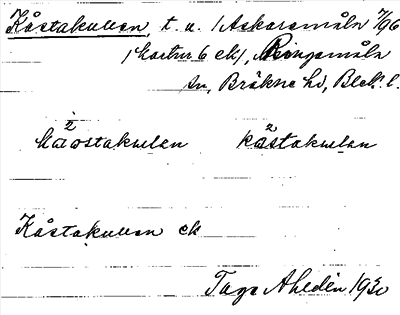 Kåstakullen, t. u. /Askaremåla 7/96
/kartur 6 ek/, Ringamåla
sn, Bräkne hd, Blek. l.
kåostakulen kåstakulan
Kåstakullen ek
Tage Ahldén 1930